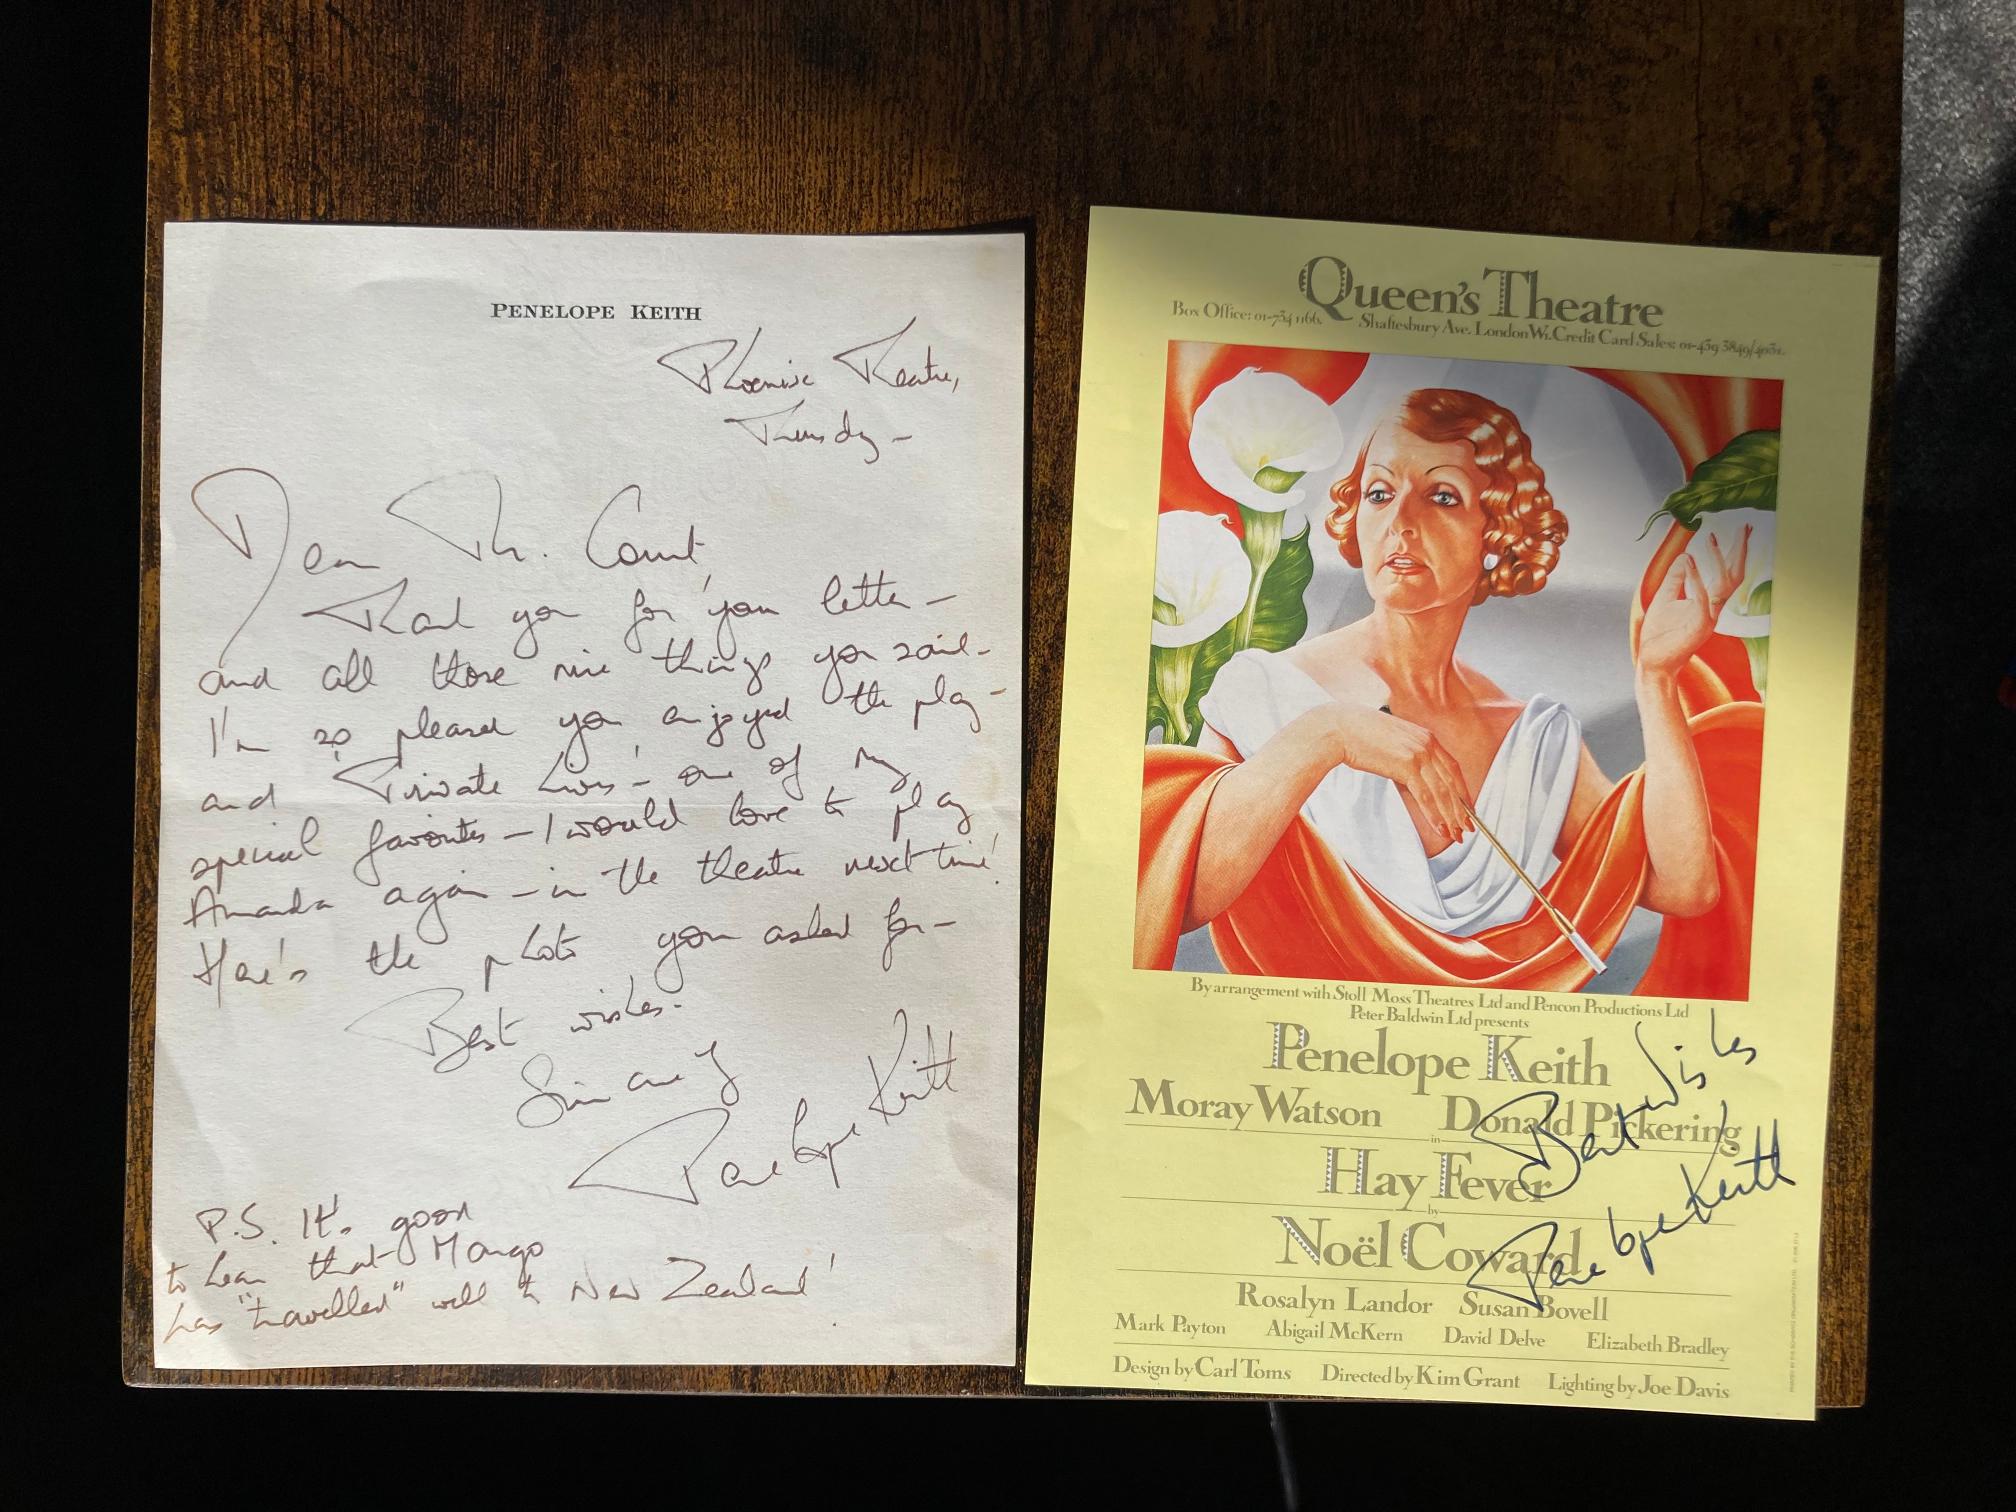 PENELOPE KEITH
Phoenix Theatre,
Thursday –
Dear Mr. Count,
Thank you for your letter –
and all those nice things you said –
I'm so pleased you enjoyed the play –
and 'Private Lives' – one of my
special favourites – I would love to play
Amanda again – in the theatre next time!
Here's the photo you asked for –
Best wishes.
Sincerely
Penelope Keith
P.S. It's good
to hear that Margo
has "travelled" well to New Zealand!
Queen's Theatre
Box Office: 01-734 1166. Shaftesbury Ave. London W1. Credit Card Sales: 01-439 3849/4031.
By arrangement with Stoll Moss Theatres Ltd and Pencon Productions Ltd
Peter Baldwin Ltd presents
Penelope Keith
Moray Watson Donald Pickering
in
Hay Fever
by
Noël Coward
Best Wishes
Penelope Keith
Rosalyn Landor Susan Bovell
Mark Payton Abigail McKern David Delve Elizabeth Bradley
Design by Carl Toms Directed by Kim Grant Lighting by Joe Davis